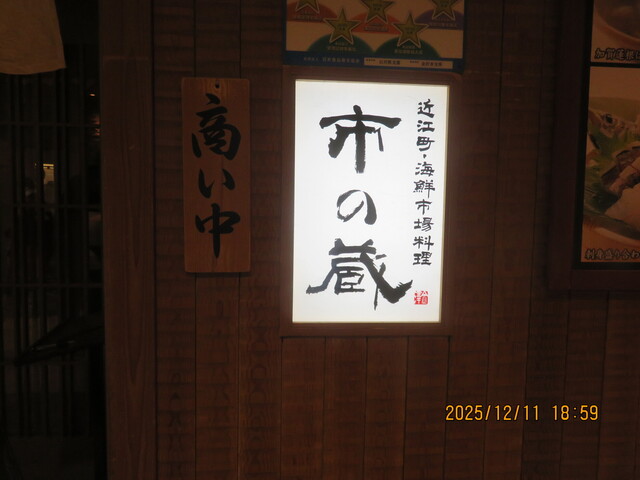 商い中
市の蔵
近江町・海鮮市場料理
2025/12/11 18:59